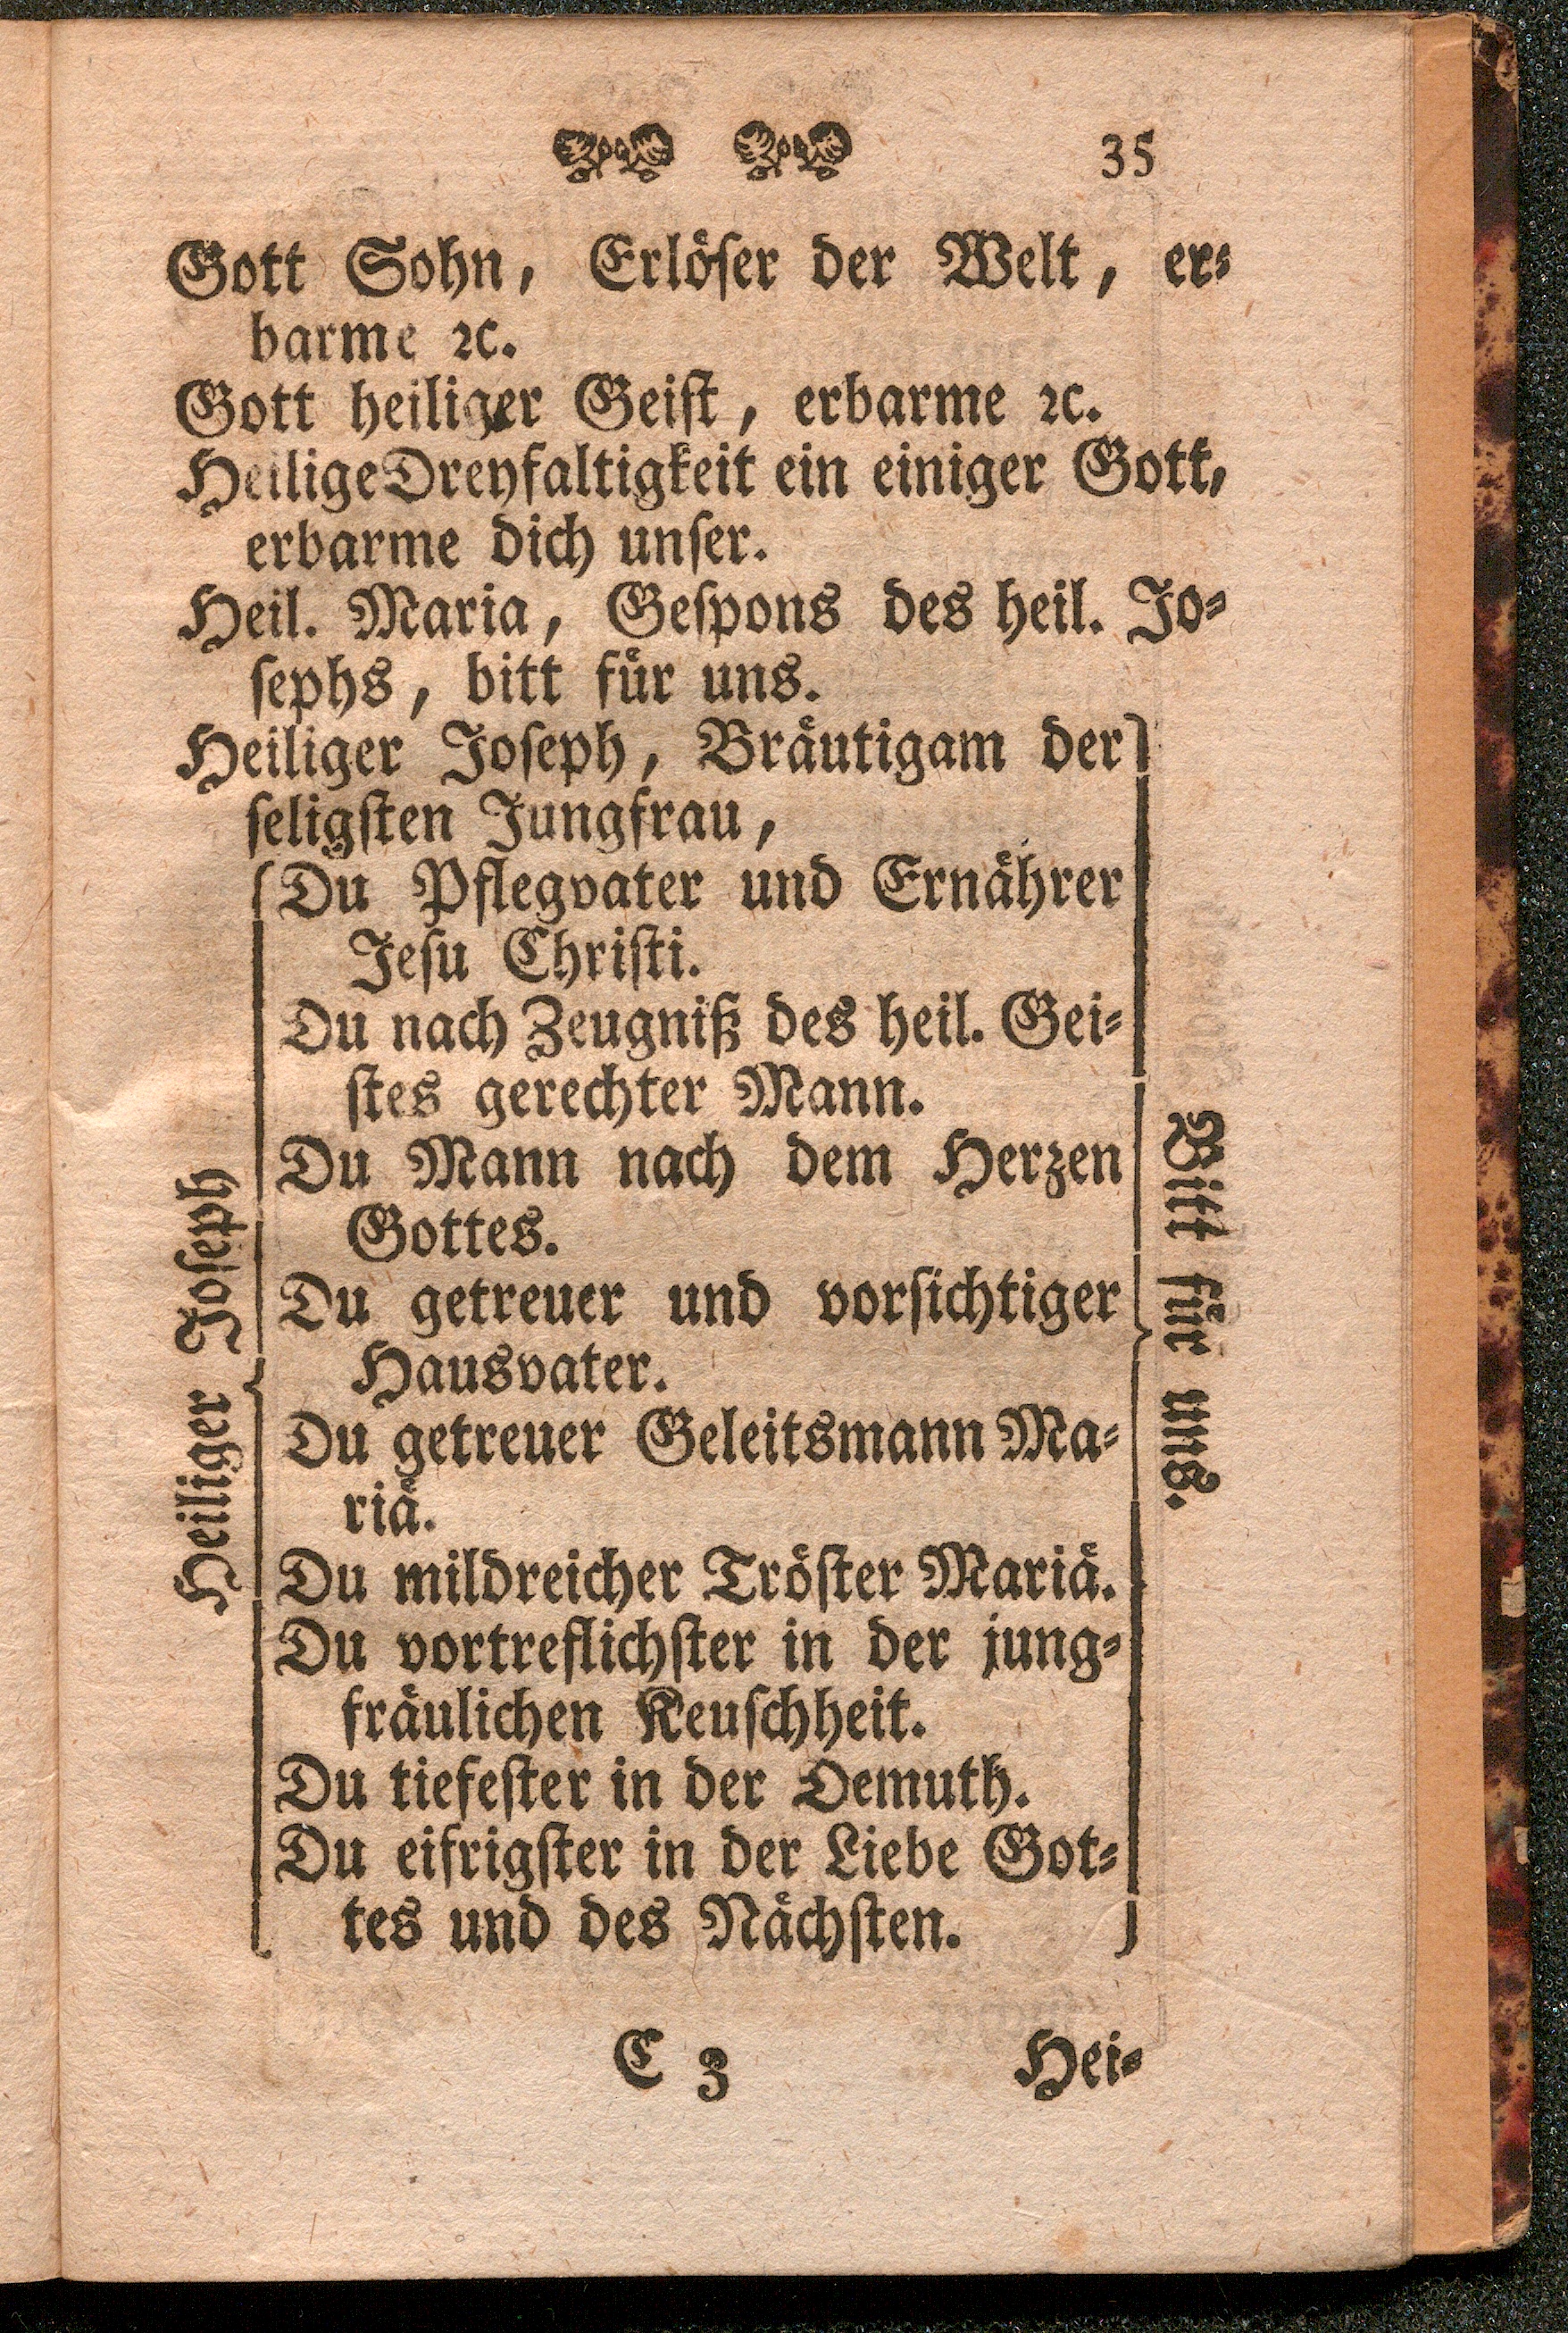 35
Gott Sohn, Erlöſer der Welt, er⸗
barme ꝛc.
Gott heiliger Geiſt, erbarme ꝛc.
Heilige Dreyfaltigkeit ein einiger Gott,
erbarme dich unſer.
Heil. Maria, Geſpons des heil. Jo⸗
ſephs, bitt für uns.
Heiliger Joſeph, Bräutigam der
ſeligſten Jungfrau,
Heiliger Joſeph
Du Pflegvater und Ernährer
Jeſu Chriſti.
Du nach Zeugniß des heil. Gei⸗
ſtes gerechter Mann.
Du Mann nach dem Herzen
Gottes.
Du getreuer und vorſichtiger
Hausvater.
Du getreuer Geleitsmann Ma⸗
riä.
Du mildreicher Tröſter Mariä.
Du vortreflichſter in der jung⸗
fräulichen Keuſchheit.
Du tiefeſter in der Demuth.
Du eifrigſter in der Liebe Got⸗
tes und des Nächſten.
Bitt für uns.
C 3
Hei⸗